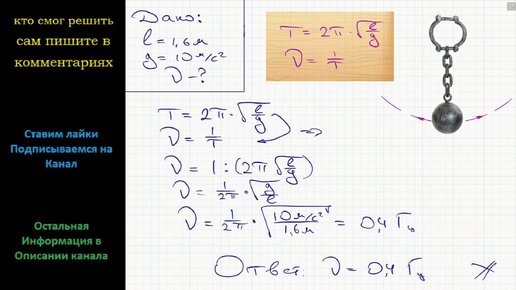 кто смог решить
сам пишите в
комментариях
Ставим лайки
Подписываемся на
Канал
Остальная
Информация в
Описании канала
Дано:
l = 1,6 м
g = 10 м/с²
ν - ?
T = 2π · √(l/g)
ν = 1/T
T = 2π · √(l/g)
ν = 1/T ⇒
ν = 1 : (2π √(l/g))
ν = 1/2π · √(g/l)
ν = 1/2π · √(10 м/с² / 1,6 м) = 0,4 Гц
Ответ: ν = 0,4 Гц